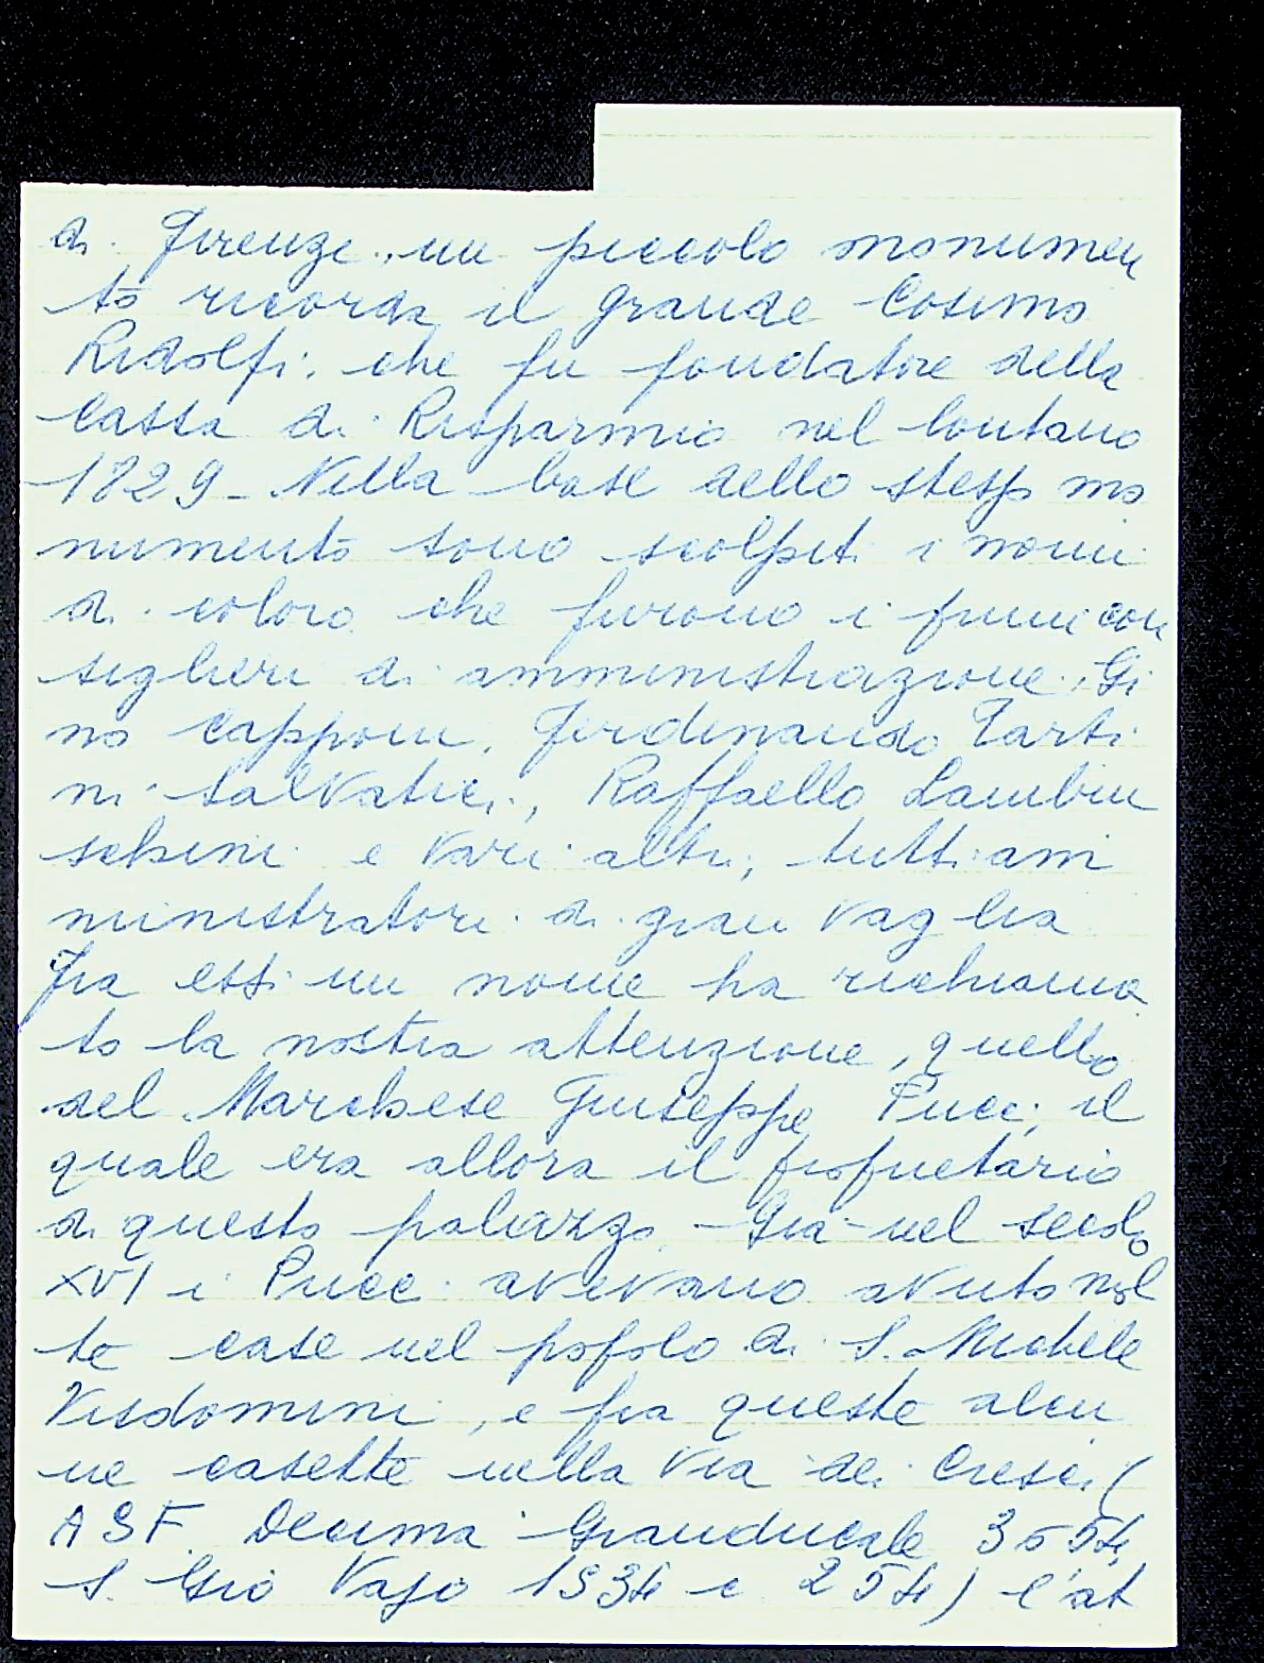 di Firenze, un piccolo monumen
to ricorda il grande Cosimo
Ridolfi, che fu fondatore della
Cassa di Risparmio nel lontano
1829 - Nella base dello stesso mo
numento sono scolpiti i nomi
di coloro che furono i primi con
siglieri di amministrazione, Gi
no Capponi, Ferdinando Tarti
ni Salvatici, Raffaello Lambru
schini e vari altri, tutti am
ministratori di gran vaglia
Fra essi un nome ha richiama
to la nostra attenzione, quello
del Marchese Giuseppe Pucci, il
quale era allora il proprietario
di questo palazzo. - Già nel secolo
XVI i Pucci avevano avuto mol
te case nel popolo di S. Michele
Visdomini, e fra queste alcu
ne casette nella Via dei Cresci (
ASF. Decima Granducale 3654,
S. Gio Vajo 1534 e 254) l'at